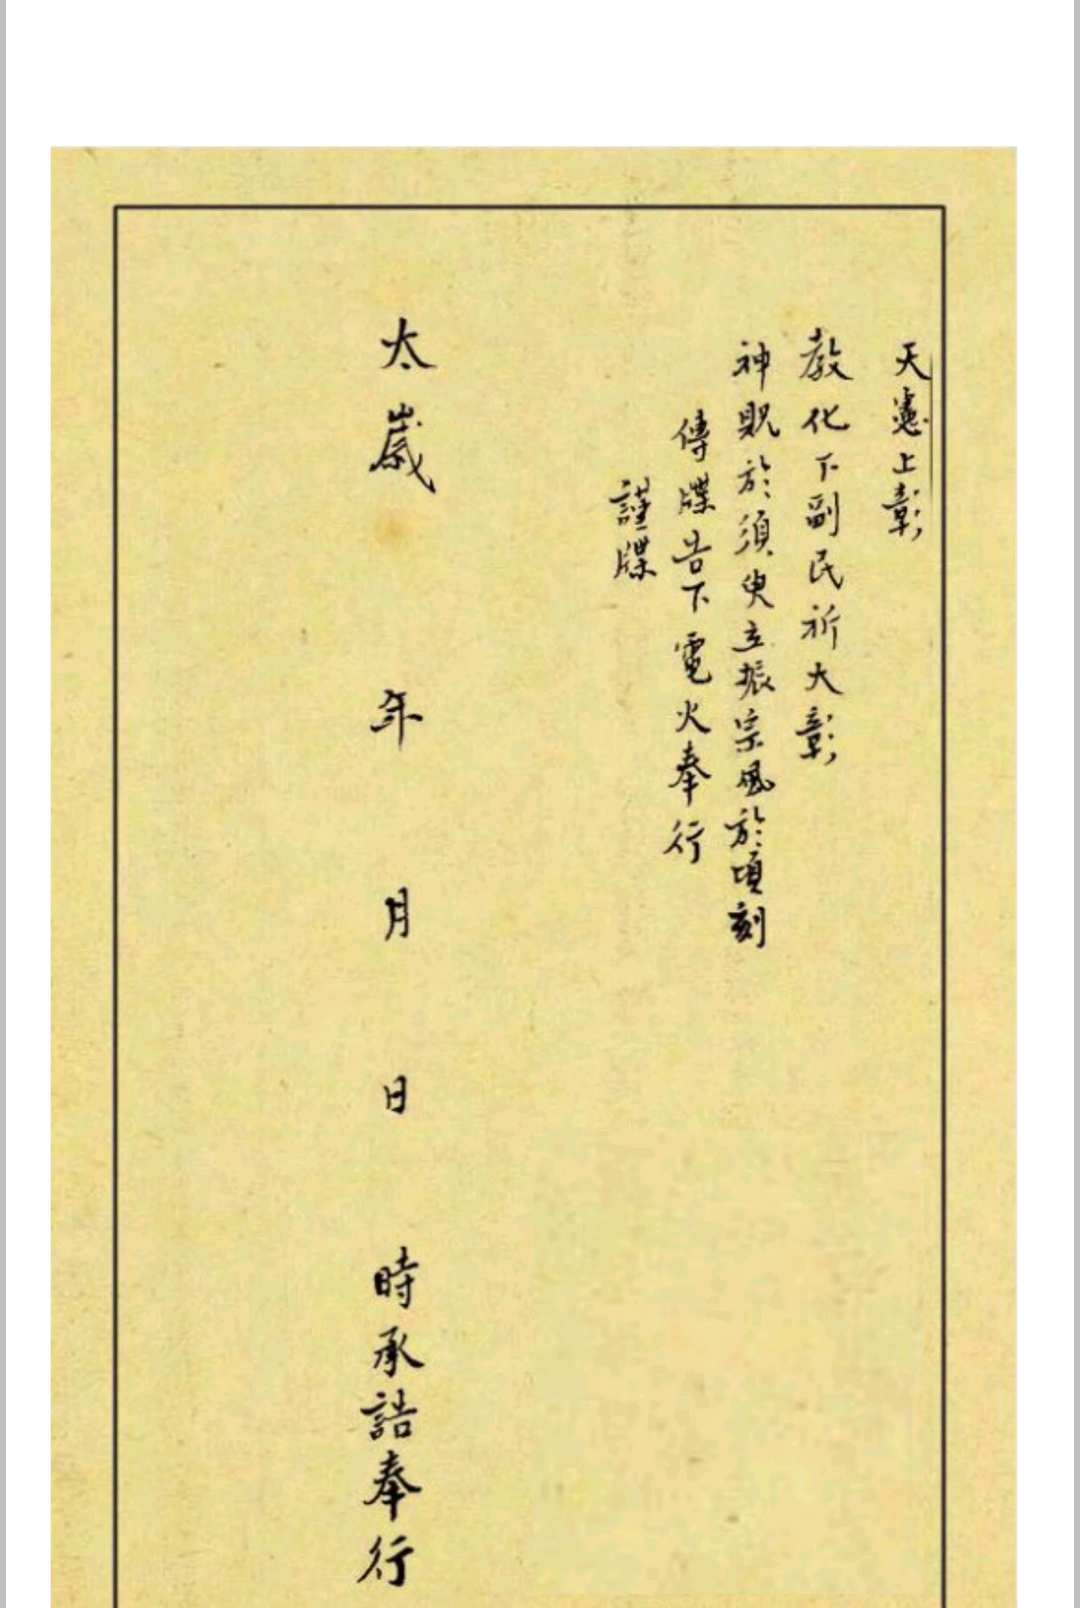 天憲上彰
教化下副民祈大彰
神貺於須臾立振宗風於頃刻
傳牒告下電火奉行
謹牒
太歲 年 月 日 時承誥奉行